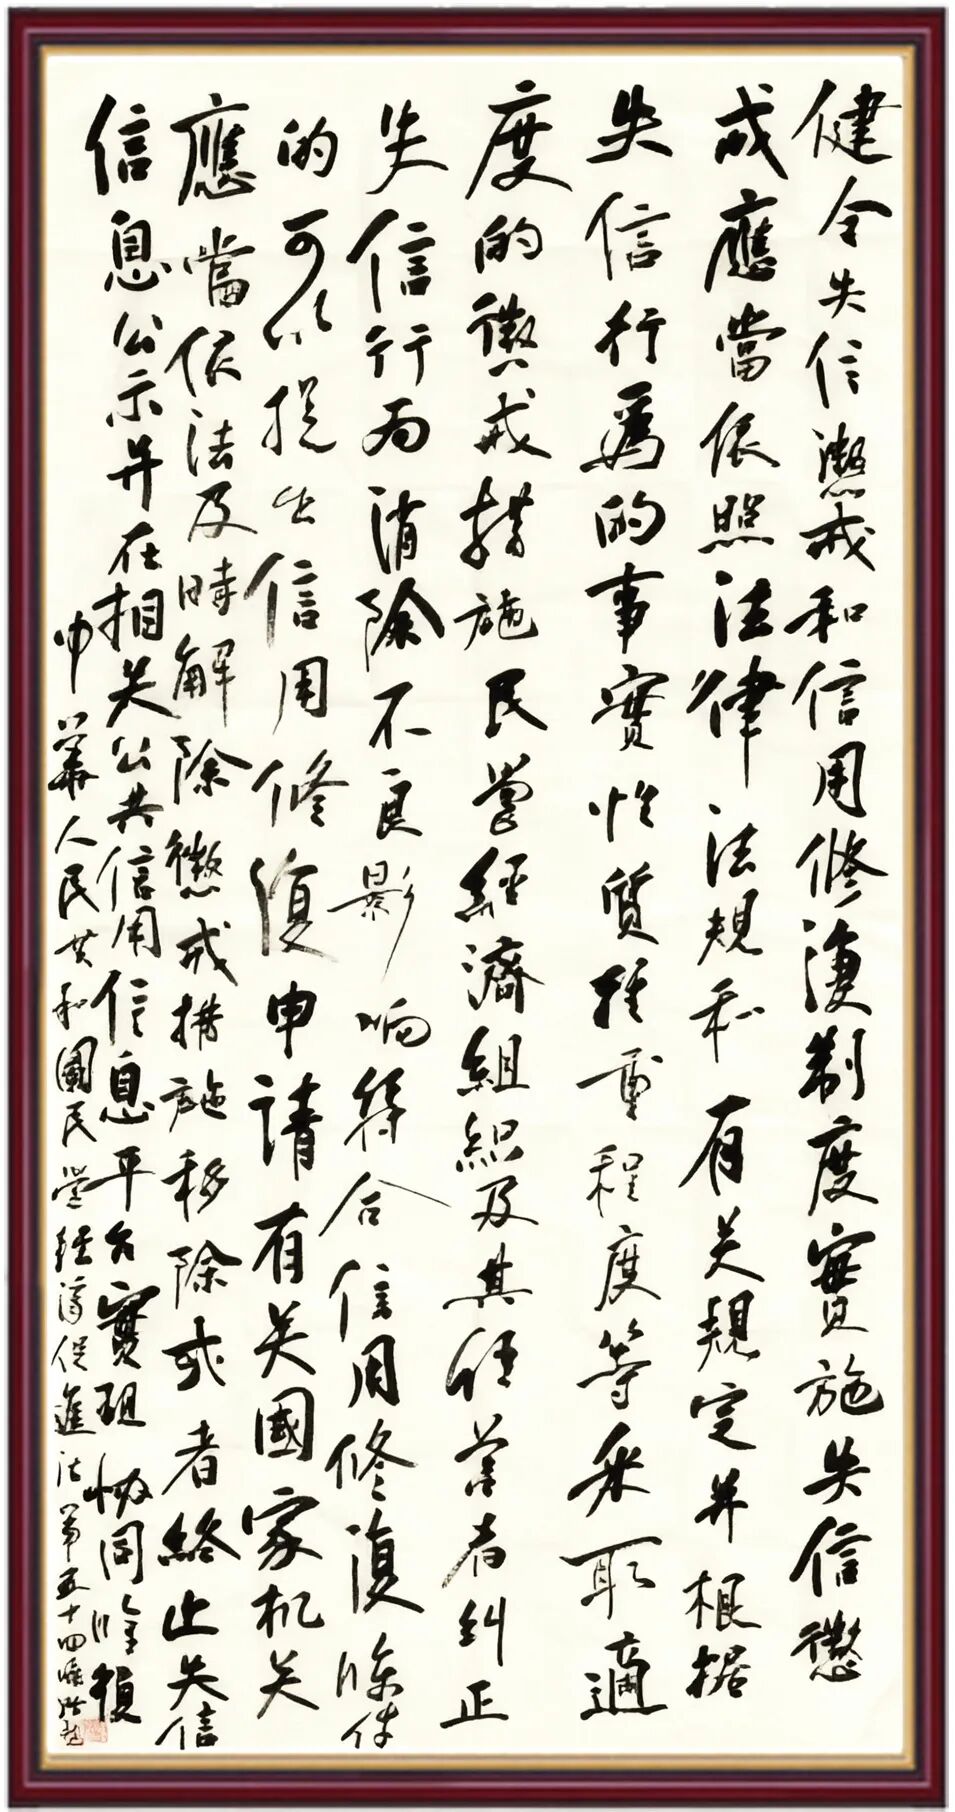 健全失信懲戒和信用修復制度實施失信懲
戒應當依照法律法規和有关規定并根据
失信行爲的事實性質輕重程度等采取適
度的懲戒措施民營經濟組織及其经营者纠正
失信行为消除不良影响符合信用修復條件
的可以提出信用修復申請有关國家机关
應當依法及時解除懲戒措施移除或者終止失信
信息公示并在相关公共信用信息平台實現协同修復
中華人民共和國民營經濟促進法第五十四條